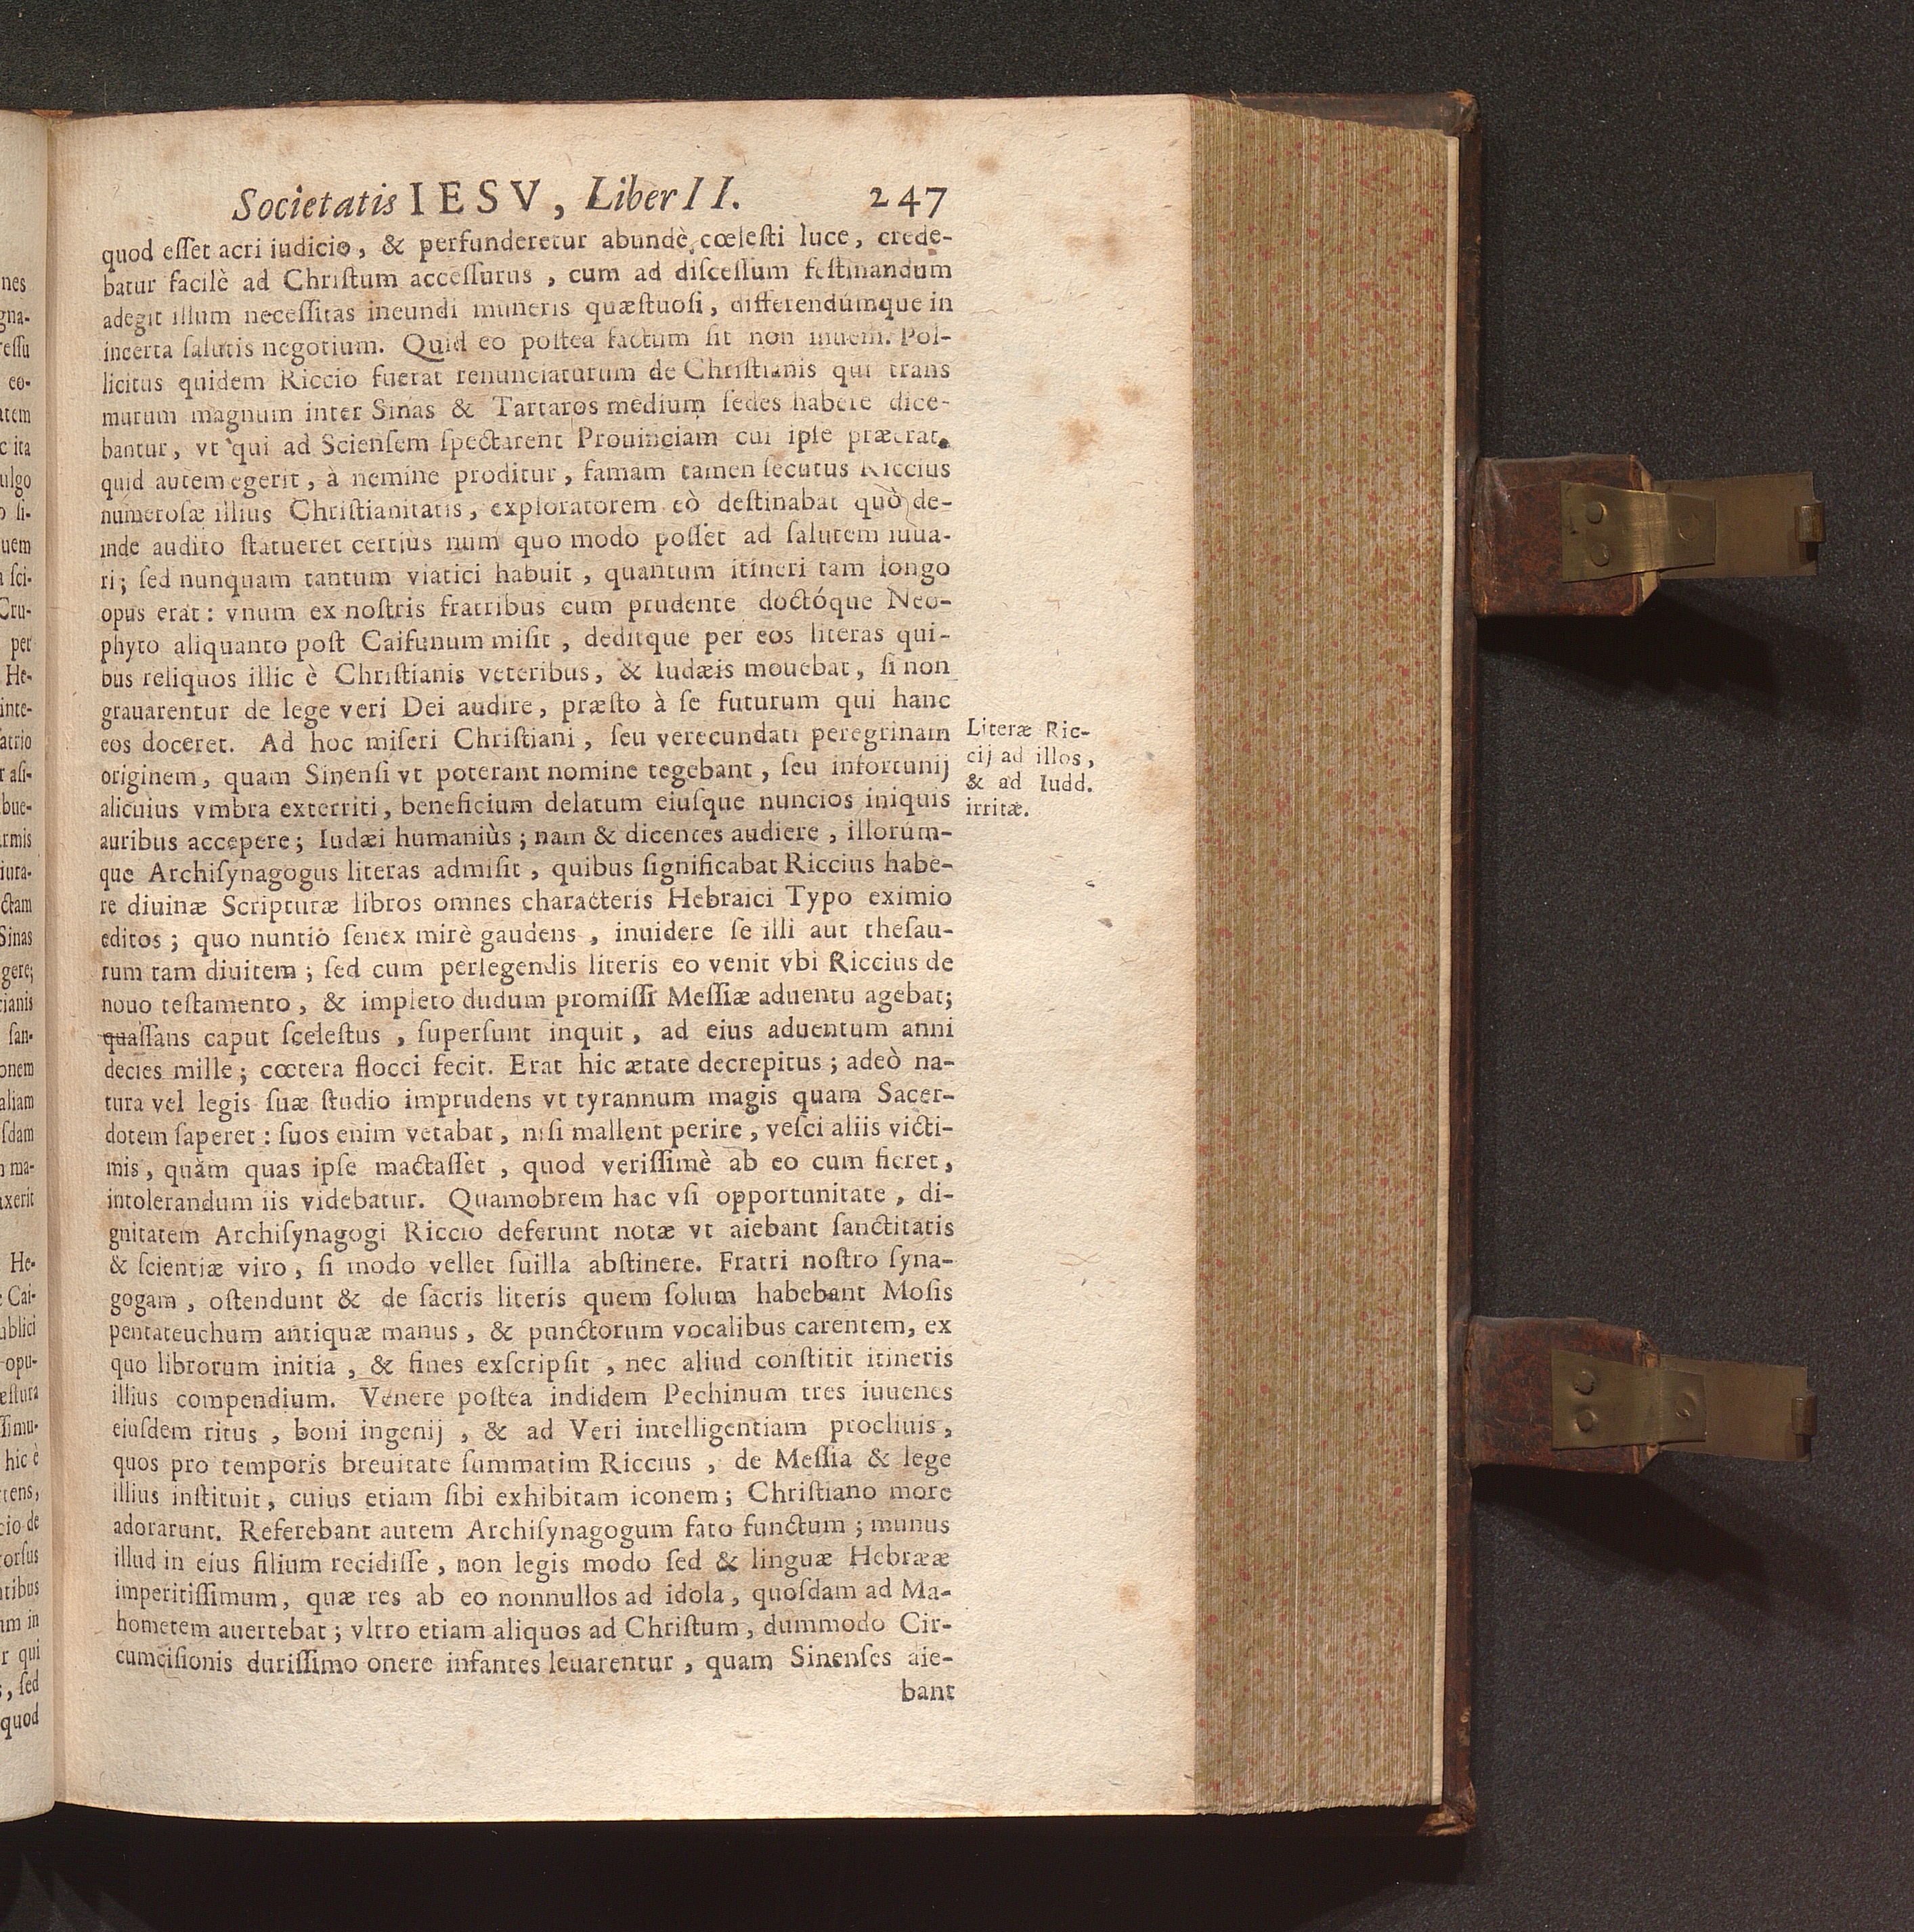 Societatis IESV, Liber II. 247
quod eſſet acri iudicio, & perfunderetur abundè cœleſti luce, crede-
batur facilè ad Chriſtum acceſſurus, cum ad diſceſſum feſtinandum
adegit illum neceſſitas ineundi muneris quæſtuoſi, differendúmque in
incerta ſalutis negotium. Quid eo poſtea factum ſit non inueni. Pol-
licitus quidem Riccio fuerat renunciaturum de Chriſtianis qui trans
murum magnum inter Sinas & Tartaros medium ſedes habere dice-
bantur, vt qui ad Scienſem ſpectarent Prouinciam cui ipſe præerat.
quid autem egerit, à nemine proditur, famam tamen ſecutus Riccius
numeroſæ illius Chriſtianitatis, exploratorem eò deſtinabat quò de-
inde audito ſtatueret certius num quo modo poſſet ad ſalutem iuua-
ri; ſed nunquam tantum viatici habuit, quantum itineri tam longo
opus erat: vnum ex noſtris fratribus cum prudente doctóque Neo-
phyto aliquanto poſt Caifunum miſit, deditque per eos literas qui-
bus reliquos illic è Chriſtianis veteribus, & Iudæis mouebat, ſi non
grauarentur de lege veri Dei audire, præſto à ſe futurum qui hanc
eos doceret. Ad hoc miſeri Chriſtiani, ſeu verecundati peregrinam
originem, quam Sinenſi vt poterant nomine tegebant, ſeu infortunij
alicuius vmbra exterriti, beneficium delatum eiuſque nuncios iniquis
auribus accepere; Iudæi humaniùs; nam & dicentes audiere, illorúm-
que Archiſynagogus literas admiſit, quibus ſignificabat Riccius habe-
re diuinæ Scripturæ libros omnes characteris Hebraici Typo eximio
editos; quo nuntio ſenex mirè gaudens, inuidere ſe illi aut theſau-
rum tam diuitem; ſed cum perlegendis literis eo venit vbi Riccius de
nouo teſtamento, & impleto dudum promiſſi Meſſiæ aduentu agebat;
quaſſans caput ſceleſtus, ſuperſunt inquit, ad eius aduentum anni
decies mille; cœtera flocci fecit. Erat hic ætate decrepitus; adeò na-
tura vel legis ſuæ ſtudio imprudens vt tyrannum magis quam Sacer-
dotem ſaperet: ſuos enim vetabat, niſi mallent perire, veſci aliis victi-
mis, quàm quas ipſe mactaſſet, quod veriſſimè ab eo cum fieret,
intolerandum iis videbatur. Quamobrem hac vſi opportunitate, di-
gnitatem Archiſynagogi Riccio deferunt notæ vt aiebant ſanctitatis
& ſcientiæ viro, ſi modo vellet ſuilla abſtinere. Fratri noſtro ſyna-
gogam, oſtendunt & de ſacris literis quem ſolum habebant Moſis
pentateuchum antiquæ manus, & punctorum vocalibus carentem, ex
quo librorum initia, & fines exſcripſit, nec aliud conſtitit itineris
illius compendium. Venere poſtea indidem Pechinum tres iuuenes
eiuſdem ritus, boni ingenij, & ad Veri intelligentiam procliuis,
quos pro temporis breuitate ſummatim Riccius, de Meſſia & lege
illius inſtituit, cuius etiam ſibi exhibitam iconem; Chriſtiano more
adorarunt. Referebant autem Archiſynagogum fato functum; munus
illud in eius filium recidiſſe, non legis modo ſed & linguæ Hebrææ
imperitiſſimum, quæ res ab eo nonnullos ad idola, quoſdam ad Ma-
hometem auertebat; vltro etiam aliquos ad Chriſtum, dummodo Cir-
cumciſionis duriſſimo onere infantes leuarentur, quam Sinenſes aie-
bant
Literæ Ric-
cij ad illos,
& ad Iudd.
irritæ.